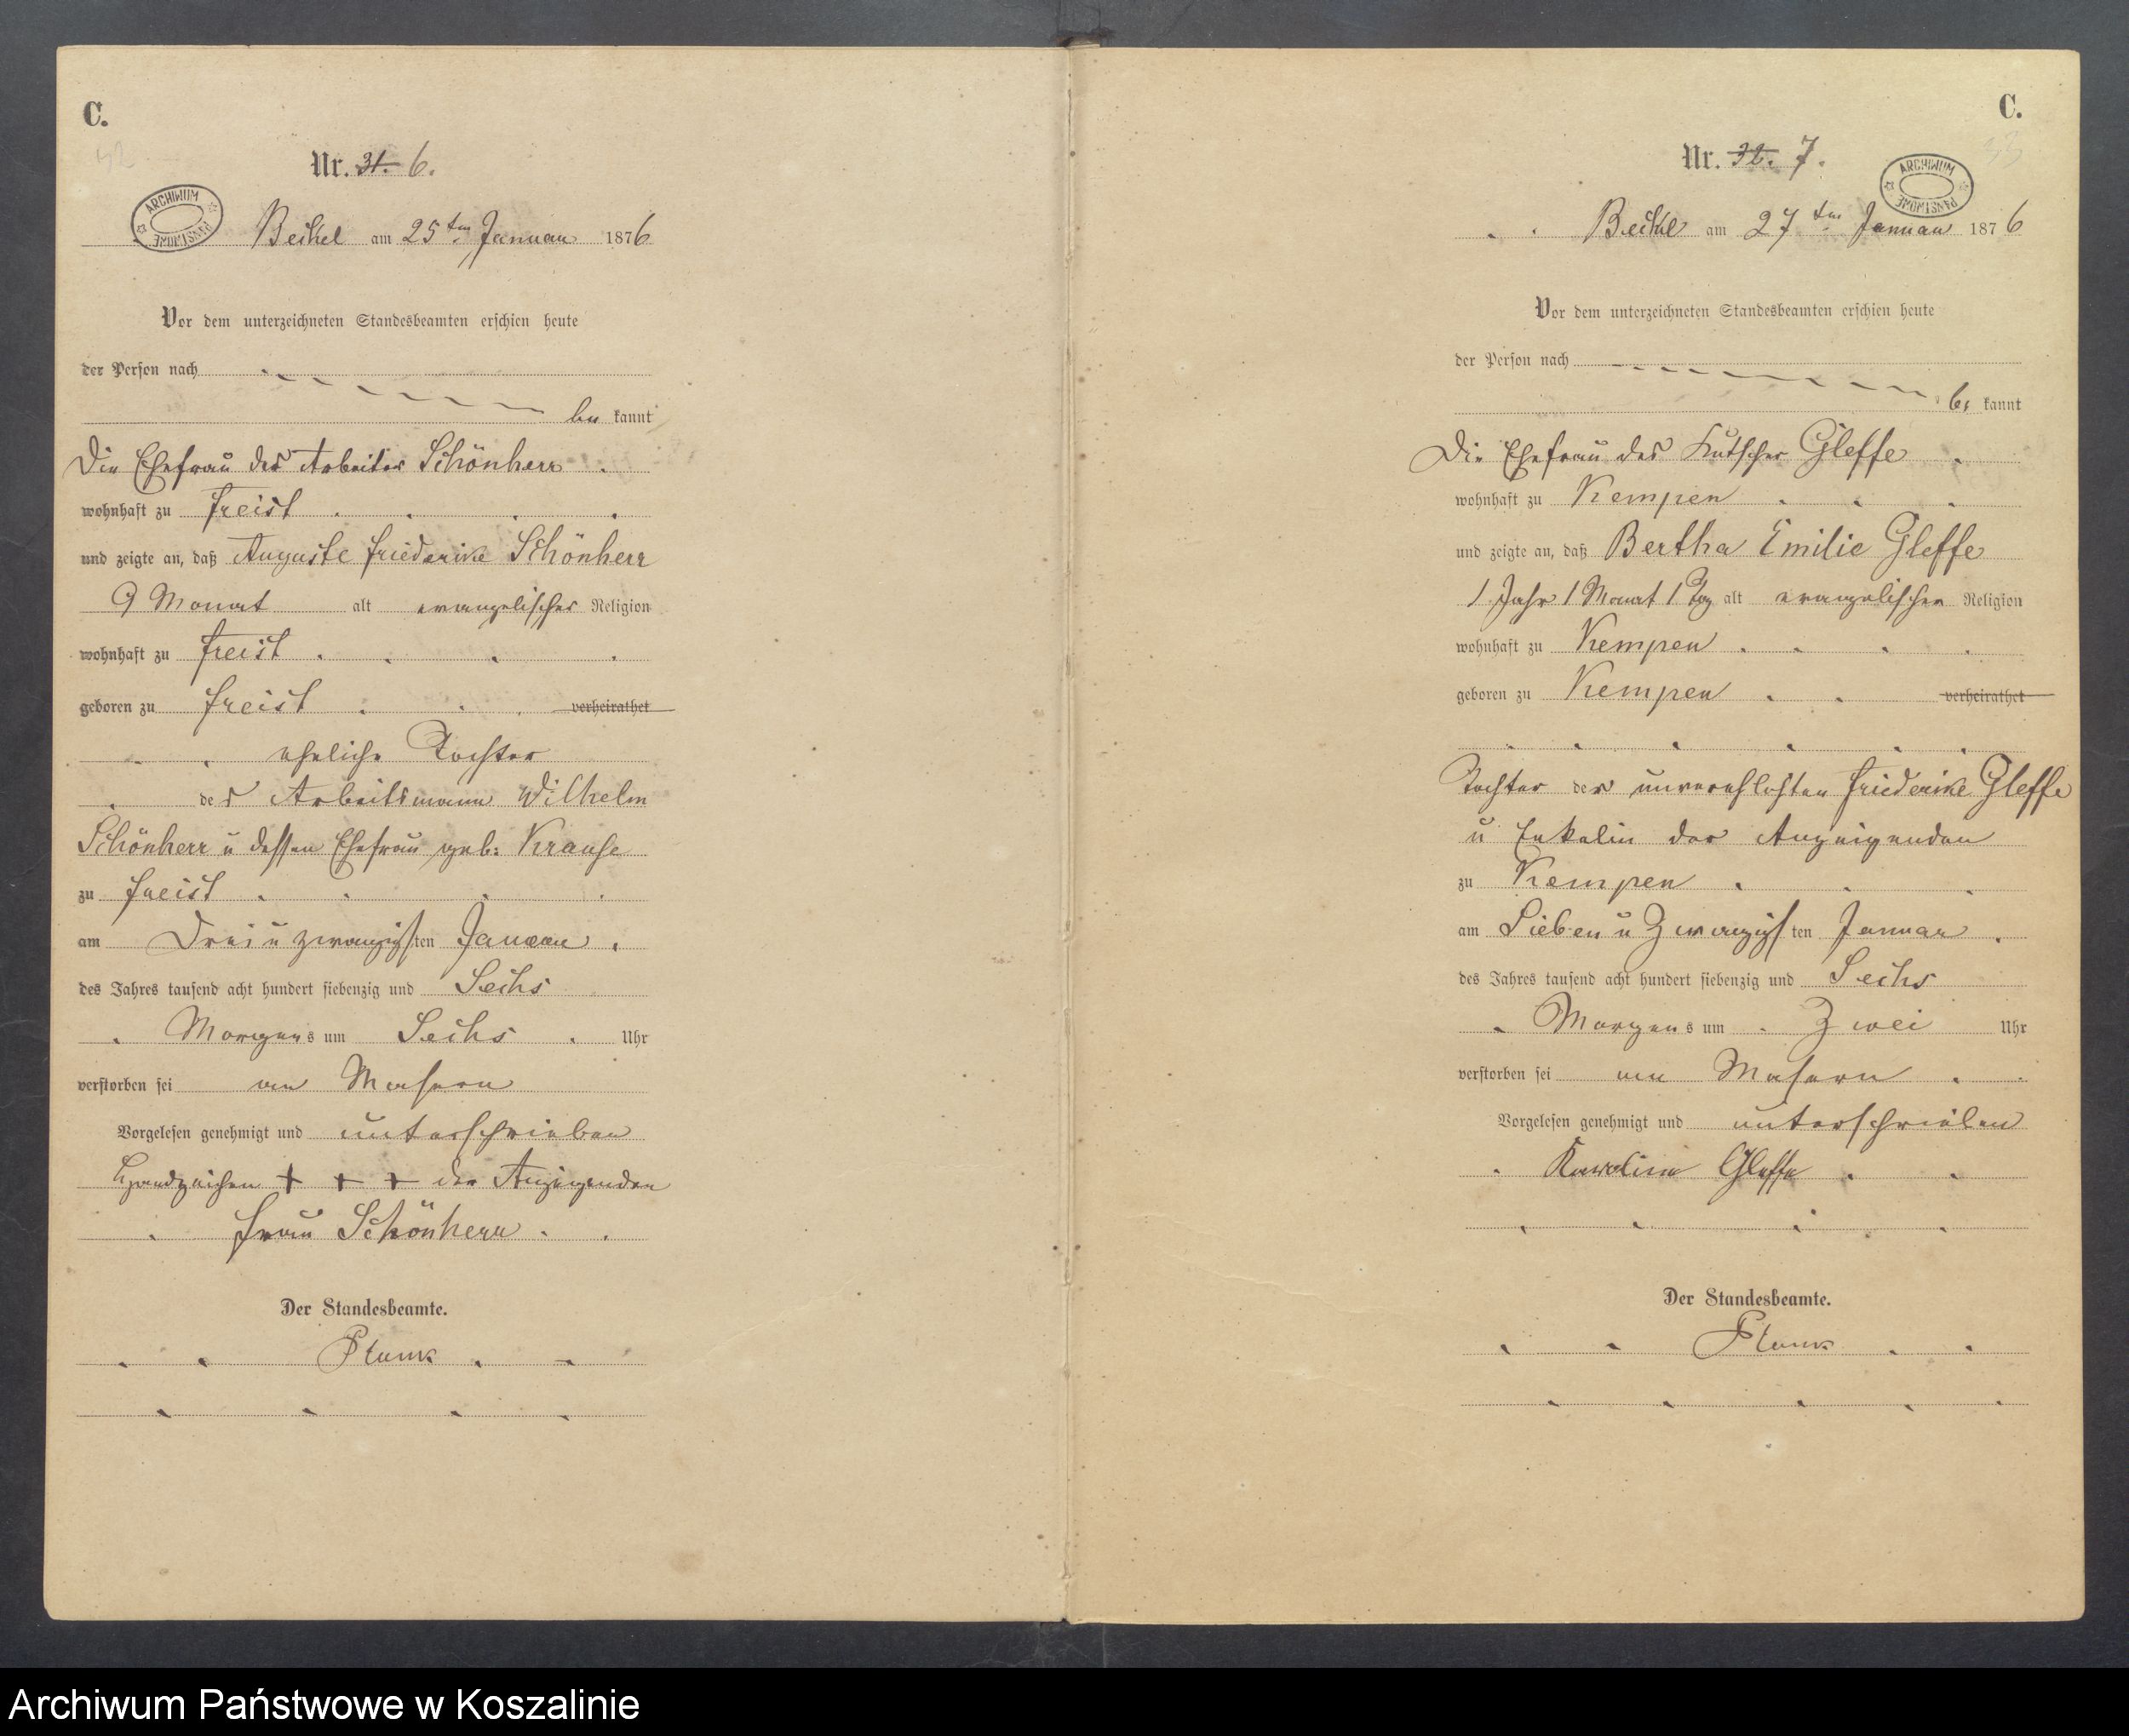 C.
Nr. 31. 6.
ARCHIWUM PAŃSTWOWE
Bechel am 25ten Januar 1876
Vor dem unterzeichneten Standesbeamten erschien heute
der Person nach
be kannt
Die Ehefrau des Arbeiter Schönherr
wohnhaft zu Freist
und zeigte an, daß Auguste Friederike Schönherr
9 Monat alt evangelischer Religion
wohnhaft zu Freist
geboren zu Freist verheirathet
eheliche Tochter
des Arbeitsmann Wilhelm
Schönherr u dessen Ehefrau geb: Krause
zu Freist
am Drei u zwanzigsten Januar
des Jahres tausend acht hundert siebenzig und Sechs
Morgens um Sechs Uhr
verstorben sei an Masern
Vorgelesen genehmigt und unterschrieben
Handzeichen + + + der Anzeigenden
Frau Schönherr
Der Standesbeamte.
C.
Nr. 32. 7.
ARCHIWUM PAŃSTWOWE
Bechel am 27ten Januar 1876
Vor dem unterzeichneten Standesbeamten erschien heute
der Person nach
be kannt
Die Ehefrau des Kutscher Gleffe
wohnhaft zu Kempen
und zeigte an, daß Bertha Emilie Gleffe
1 Jahr 1 Monat 1 Tag alt evangelischer Religion
wohnhaft zu Kempen
geboren zu Kempen verheirathet
Tochter der unverehlichten Friederike Gleffe
u Enkelin der Anzeigenden
zu Kempen
am Sieben u Zwanzigsten Januar
des Jahres tausend acht hundert siebenzig und Sechs
Morgens um Zwei Uhr
verstorben sei an Masern
Vorgelesen genehmigt und unterschrieben
Karoline Gleffe
Der Standesbeamte.
Archiwum Państwowe w Koszalinie